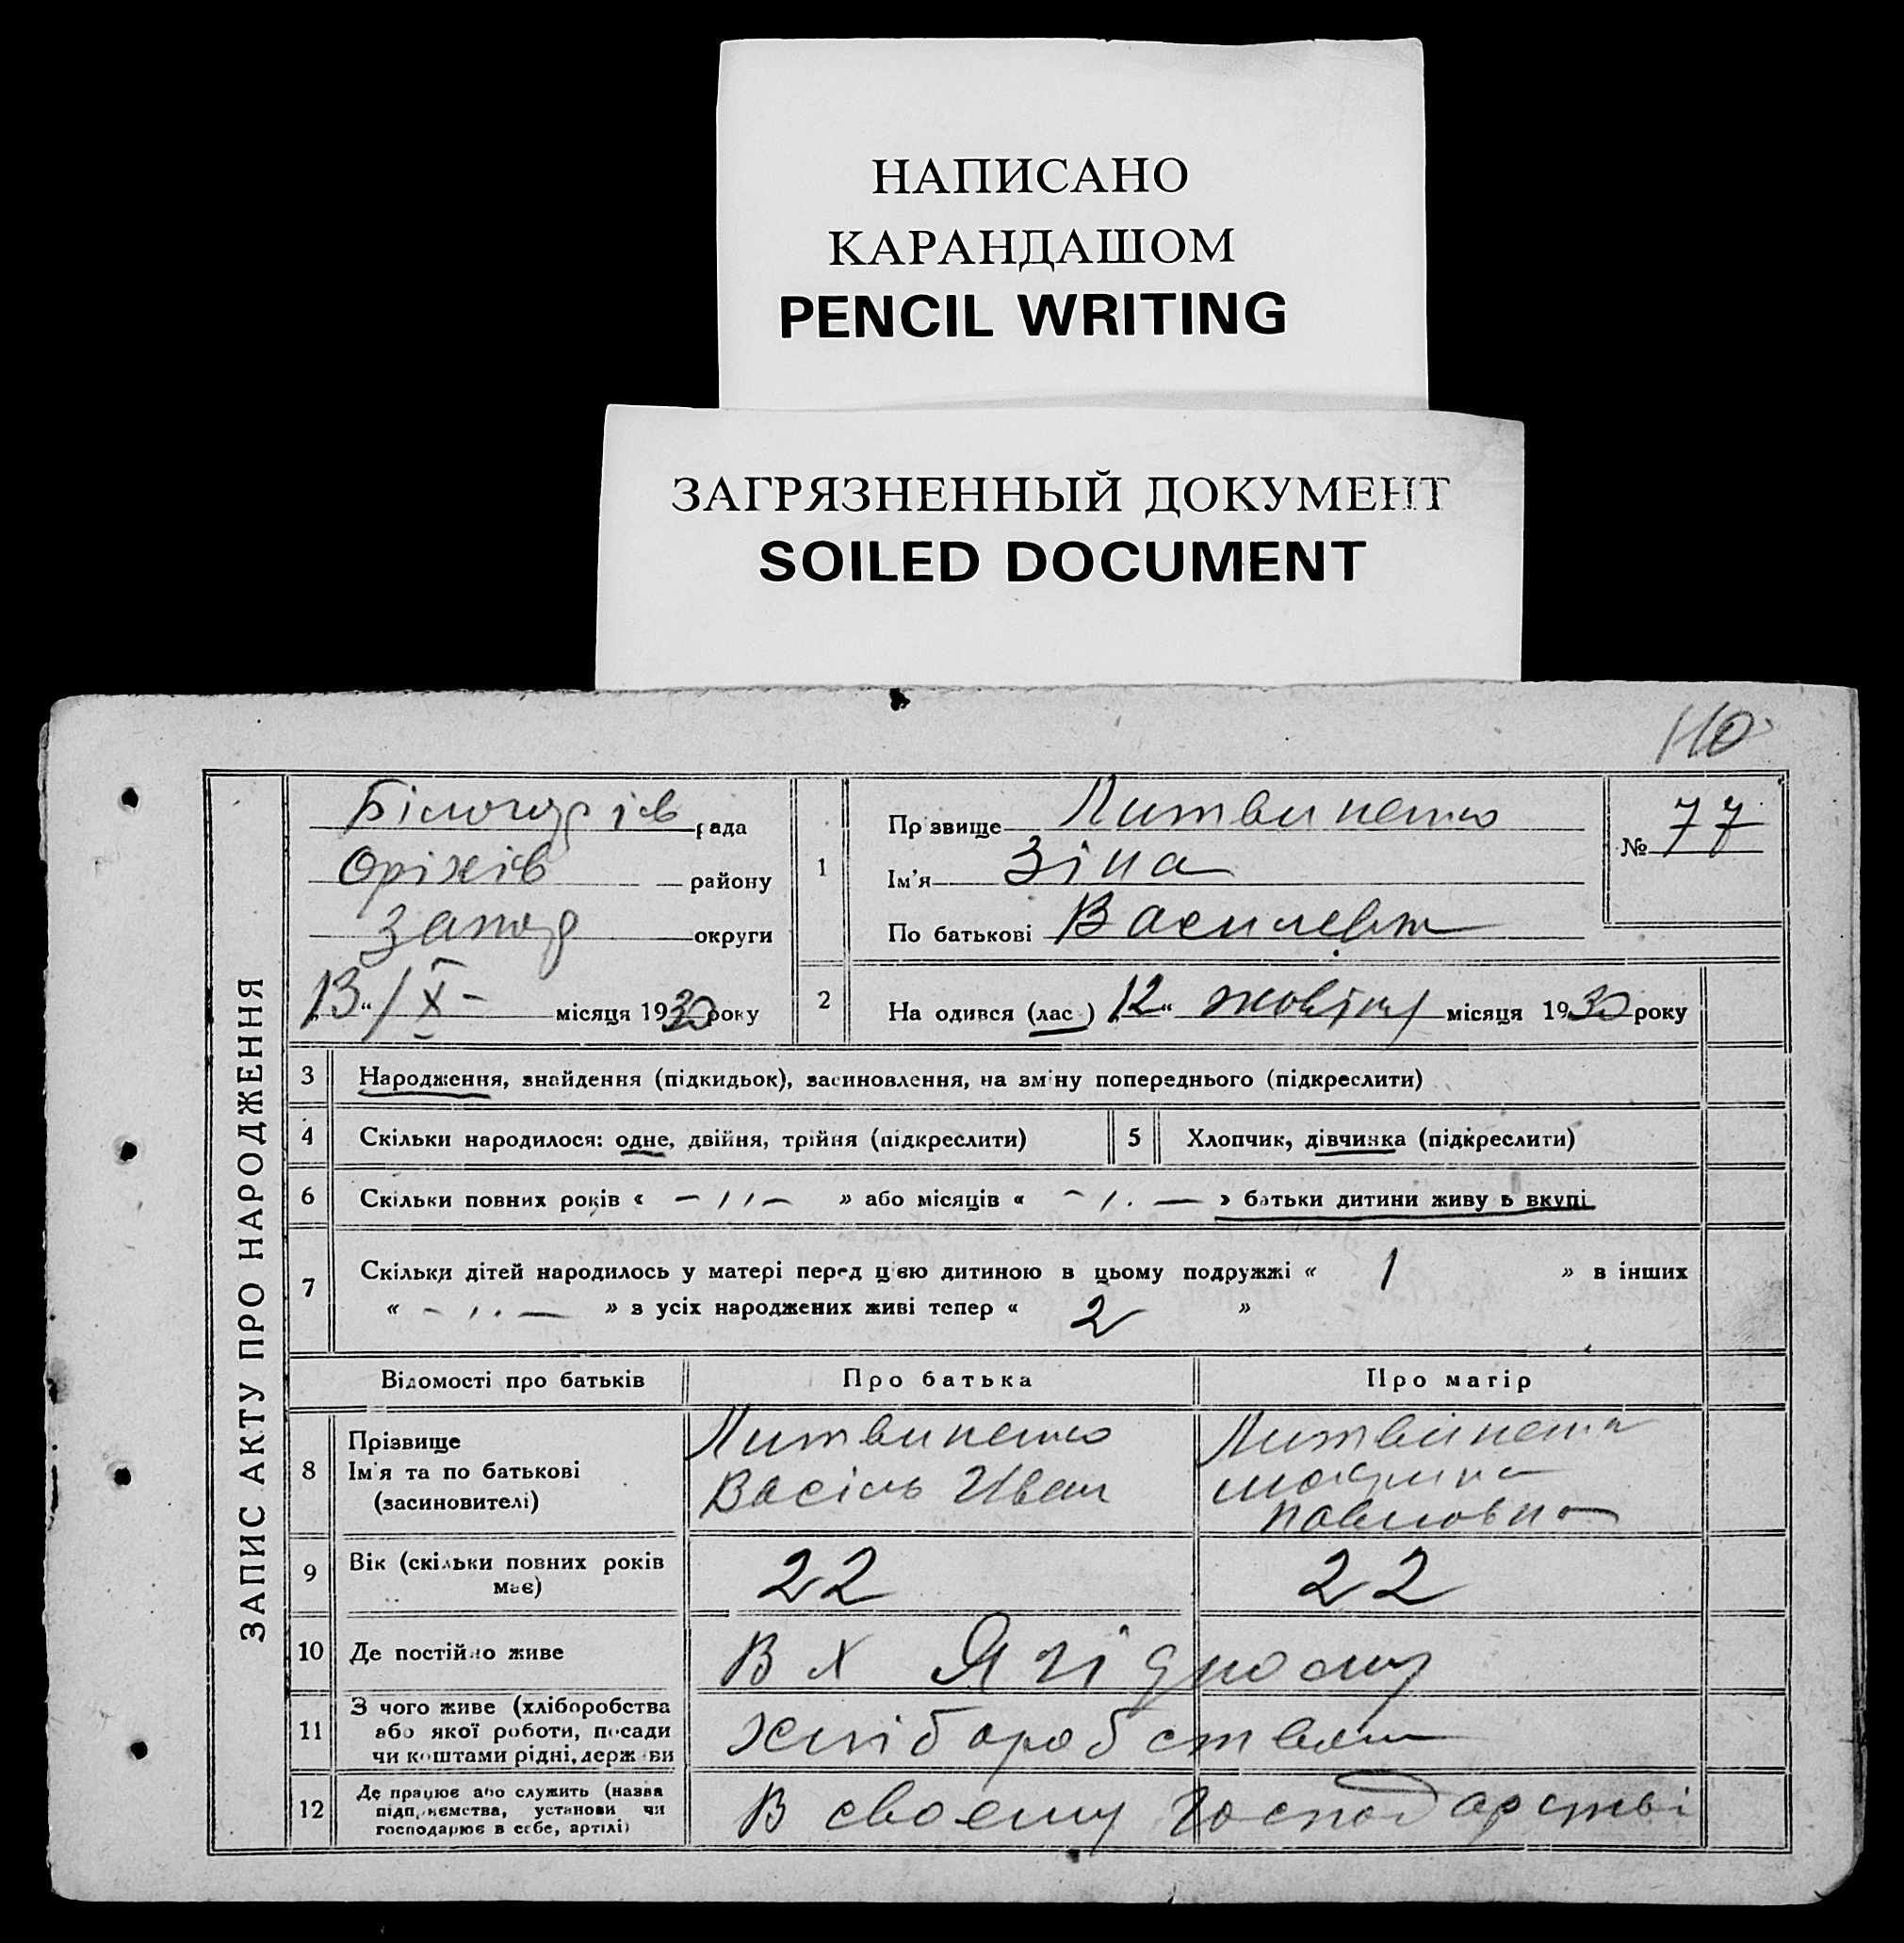 НАПИСАНО
КАРАНДАШОМ
PENCIL WRITING
ЗАГРЯЗНЕННЫЙ ДОКУМЕНТ
SOILED DOCUMENT
110
ЗАПИС АКТУ ПРО НАРОДЖЕННЯ
Білогорів рада
Оріхів району
Запор округи
„13“/X- місяця 1930 року
1
Прізвище Литвиненко
Ім'я Зіна
По батькові
№ 77
2 Народився (лась) „12“ жовтня місяця 1930 року
3 Народження, знайдення (підкидьок), засиновлення, на зміну попереднього (підкреслити)
4 Скільки народилося: одне, двійня, трійня (підкреслити)
5 Хлопчик, дівчинка (підкреслити)
6 Скільки повних років « — ,, — » або місяців « — ,. — » батьки дитини живуть вкупі
7 Скільки дітей народилось у матері перед цією дитиною в цьому подружжі « 1 » в інших
« — ,. — » з усіх народжених живі тепер « 2 »
Відомості про батьків Про батька Про матір
8 Прізвище
Ім'я та по батькові
(засиновителі)
Литвиненко
Васіль Иван
Литвиненко
Мокрина
Павловна
9 Вік (скільки повних років
має)
22 22
10 Де постійно живе В х Ягідному
11 З чого живе (хліборобства
або якої роботи, посади
чи коштами рідні, держави
хліборобством
12 Де працює або служить (назва
підприємства, установи чи
господарює в себе, артілі)
В своему господарстві